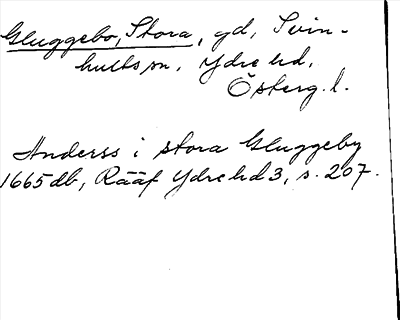 Gluggebo, Stora, gd, Svin-
hults sn, Ydre hd,
Österg. l.
Anders i stora Gluggeby
1665 db, Rääf Ydre hd 3, s. 207.